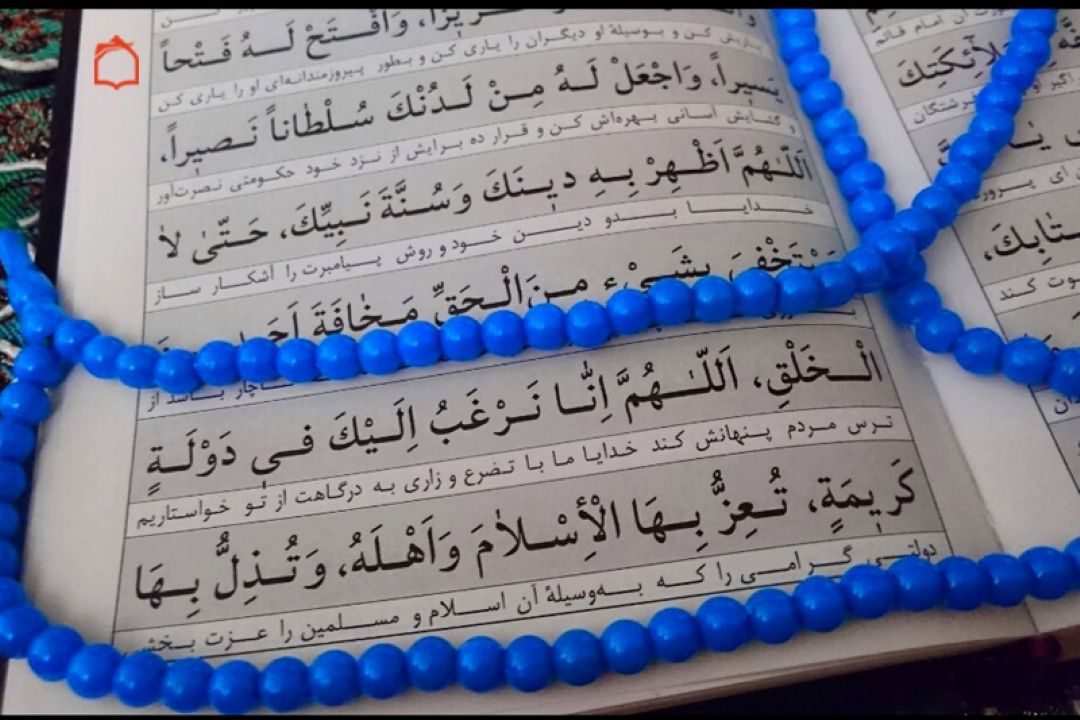 وَافْتَحْ لَهُ فَتْحاً
یاریش کن و بوسیلهٔ او دیگران را یاری کن و بطور پیروزمندانه‌ای او را یاری کن
يَسيراً، وَاجْعَلْ لَهُ مِنْ لَدُنْكَ سُلْطاناً نَصيراً،
و گشایش آسانی بهره‌اش کن و قرار ده برایش از نزد خود حکومتی نصرت‌آور
اَللّٰهُمَّ اَظْهِرْ بِهِ دينَكَ وَسُنَّةَ نَبِيِّكَ، حَتّىٰ لاٰ
خدایا بدو دین خود و روش پیامبرت را آشکار ساز
يَسْتَخْفِيَ بِشَيْءٍ مِنَ الْحَقِّ مَخٰافَةَ
ناچار باشد از
الْخَلْقِ، اَللّٰهُمَّ اِنّٰا نَرْغَبُ اِلَيْكَ في دَوْلَةٍ
ترس مردم پنهانش کند خدایا ما با تضرع و زاری به درگاهت از تو خواستاریم
كَريمَةٍ، تُعِزُّ بِهَا الْأِسْلاٰمَ وَاَهْلَهُ، وَتُذِلُّ بِهَا
دولتی گرامی را که به‌وسیلهٔ آن اسلام و مسلمین را عزت بخشی
آن امام قائم
مَلاٰئِكَتِكَ
فرشتگان
كِتٰابِكَ،